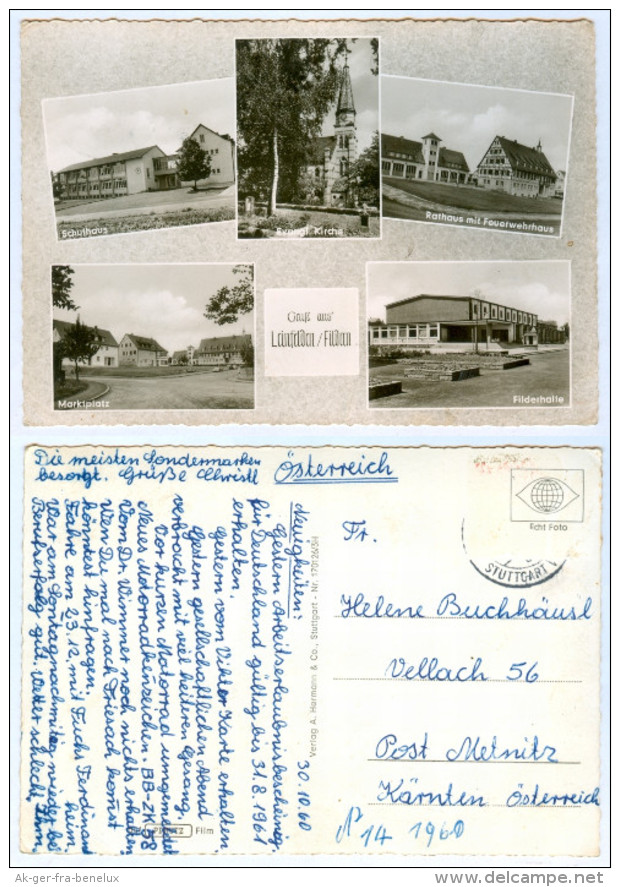 Schulhaus
Evangl. Kirche
Rathaus mit Feuerwehrhaus
Marktplatz
Gruß aus
Leinfelden/Fildern
Filderhalle
Die meisten Sondermarken
besorgt. Grüße Christl
Österreich
Echt Foto
STUTTGART
Neuigkeiten:
Gestern Arbeitserlaubnisbescheinig.
für Deutschland gültig bis 31.8.1961
erhalten.
Gestern vom Viktor Karte erhalten
Gestern gesellschaftlichen Abend
verbracht mit viel heiteren Gesang.
Vor kurzen Motorrad umgemeldet
Neues Motorradkennzeichen: BB-ZK 98
Vom Dr. Wimmer noch nichts erhalten.
Wenn Du mal nach Friesach kommst
könntest hinfragen.
Fahre am 23.12. mit Fuchs Ferdinand heim.
War am Sonntagnachmittag wieder bei
gut. Wetter schlecht.
30.10.60
Verlag A. Hermann & Co., Stuttgart - Nr. 170126/SH
Film
Fr.
Helene Buchhäusl
Vellach 56
Post Metnitz
Kärnten Österreich
N 14 1960
Ak-ger-fra-benelux
www.delcampe.net